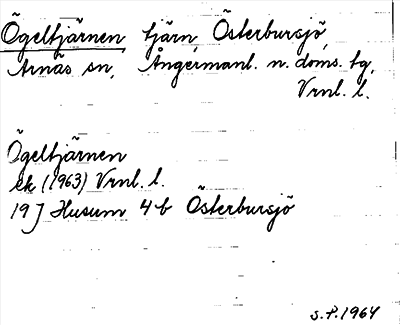 Ögeltjärnen tjärn Österbursjö
Arnäs sn, Ångermanl. n. doms. tg,
Vrnl. l.
Ögeltjärnen
ek (1963) Vrnl. l.
19 J Husum 4 b Österbursjö
S.P. 1964